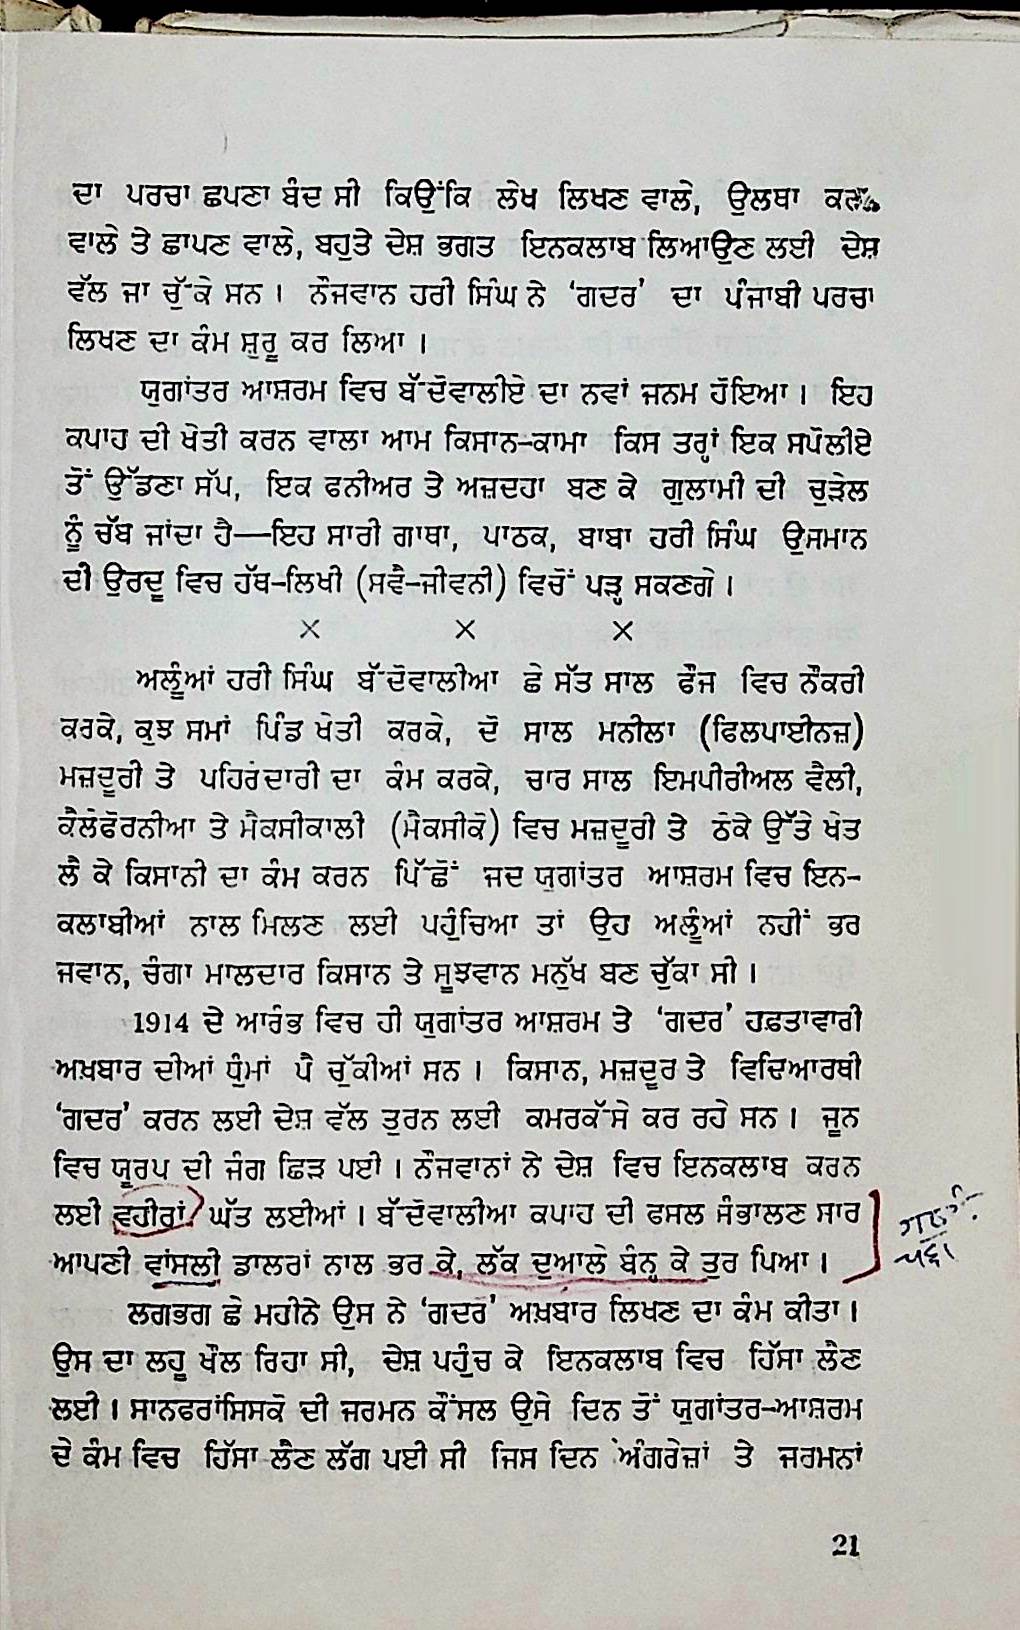 ਦਾ ਪਰਚਾ ਛਪਣਾ ਬੰਦ ਸੀ ਕਿਉਂਕਿ ਲੇਖ ਲਿਖਣ ਵਾਲੇ, ਉਲਥਾ
ਵਾਲੇ ਤੇ ਛਾਪਣ ਵਾਲੇ, ਬਹੁਤੇ ਦੇਸ਼ ਭਗਤ ਇਨਕਲਾਬ ਲਿਆਉਣ ਲਈ ਦੇਸ਼
ਵੱਲ ਜਾ ਚੁੱਕੇ ਸਨ । ਨੌਜਵਾਨ ਹਰੀ ਸਿੰਘ ਨੇ ‘ਗਦਰ’ ਦਾ ਪੰਜਾਬੀ ਪਰਚਾ
ਲਿਖਣ ਦਾ ਕੰਮ ਸ਼ੁਰੂ ਕਰ ਲਿਆ ।
ਯੁਗਾਂਤਰ ਆਸ਼ਰਮ ਵਿਚ ਬੱਦੋਵਾਲੀਏ ਦਾ ਨਵਾਂ ਜਨਮ ਹੋਇਆ । ਇਹ
ਕਪਾਹ ਦੀ ਖੇਤੀ ਕਰਨ ਵਾਲਾ ਆਮ ਕਿਸਾਨ-ਕਾਮਾ ਕਿਸ ਤਰ੍ਹਾਂ ਇਕ ਸਪੋਲੀਏ
ਤੋਂ ਉੱਡਣਾ ਸੱਪ, ਇਕ ਫਨੀਅਰ ਤੇ ਅਜ਼ਦਹਾ ਬਣ ਕੇ ਗੁਲਾਮੀ ਦੀ ਚੁੜੇਲ
ਨੂੰ ਚੱਬ ਜਾਂਦਾ ਹੈ—ਇਹ ਸਾਰੀ ਗਾਥਾ, ਪਾਠਕ, ਬਾਬਾ ਹਰੀ ਸਿੰਘ ਉਸਮਾਨ
ਦੀ ਉਰਦੂ ਵਿਚ ਹੱਥ-ਲਿਖੀ (ਸਵੈ-ਜੀਵਨੀ) ਵਿਚੋਂ ਪੜ੍ਹ ਸਕਣਗੇ ।
× × ×
ਅਲੂੰਆਂ ਹਰੀ ਸਿੰਘ ਬੱਦੋਵਾਲੀਆ ਛੇ ਸੱਤ ਸਾਲ ਫੌਜ ਵਿਚ ਨੌਕਰੀ
ਕਰਕੇ, ਕੁਝ ਸਮਾਂ ਪਿੰਡ ਖੇਤੀ ਕਰਕੇ, ਦੋ ਸਾਲ ਮਨੀਲਾ (ਫਿਲਪਾਈਨਜ਼)
ਮਜ਼ਦੂਰੀ ਤੇ ਪਹਿਰੇਦਾਰੀ ਦਾ ਕੰਮ ਕਰਕੇ, ਚਾਰ ਸਾਲ ਇਮਪੀਰੀਅਲ ਵੈਲੀ,
ਕੈਲੇਫੋਰਨੀਆ ਤੇ ਮੈਕਸੀਕਾਲੀ (ਮੈਕਸੀਕੋ) ਵਿਚ ਮਜ਼ਦੂਰੀ ਤੇ ਠੇਕੇ ਉੱਤੇ ਖੇਤ
ਲੈ ਕੇ ਕਿਸਾਨੀ ਦਾ ਕੰਮ ਕਰਨ ਪਿੱਛੋਂ ਜਦ ਯੁਗਾਂਤਰ ਆਸ਼ਰਮ ਵਿਚ ਇਨ-
ਕਲਾਬੀਆਂ ਨਾਲ ਮਿਲਣ ਲਈ ਪਹੁੰਚਿਆ ਤਾਂ ਉਹ ਅਲੂੰਆਂ ਨਹੀਂ ਭਰ
ਜਵਾਨ, ਚੰਗਾ ਮਾਲਦਾਰ ਕਿਸਾਨ ਤੇ ਸੂਝਵਾਨ ਮਨੁੱਖ ਬਣ ਚੁੱਕਾ ਸੀ ।
1914 ਦੇ ਆਰੰਭ ਵਿਚ ਹੀ ਯੁਗਾਂਤਰ ਆਸ਼ਰਮ ਤੇ ‘ਗਦਰ’ ਹਫ਼ਤਾਵਾਰੀ
ਅਖ਼ਬਾਰ ਦੀਆਂ ਧੁੰਮਾਂ ਪੈ ਚੁੱਕੀਆਂ ਸਨ । ਕਿਸਾਨ, ਮਜ਼ਦੂਰ ਤੇ ਵਿਦਿਆਰਥੀ
‘ਗਦਰ’ ਕਰਨ ਲਈ ਦੇਸ਼ ਵੱਲ ਤੁਰਨ ਲਈ ਕਮਰਕੱਸੇ ਕਰ ਰਹੇ ਸਨ । ਜੂਨ
ਵਿਚ ਯੂਰਪ ਦੀ ਜੰਗ ਛਿੜ ਪਈ । ਨੌਜਵਾਨਾਂ ਨੇ ਦੇਸ਼ ਵਿਚ ਇਨਕਲਾਬ ਕਰਨ
ਲਈ ਵਹੀਰਾਂ ਘੱਤ ਲਈਆਂ । ਬੱਦੋਵਾਲੀਆ ਕਪਾਹ ਦੀ ਫਸਲ ਸੰਭਾਲਣ ਸਾਰ
ਆਪਣੀ ਵਾਂਸਲੀ ਡਾਲਰਾਂ ਨਾਲ ਭਰ ਕੇ, ਲੱਕ ਦੁਆਲੇ ਬੰਨ੍ਹ ਕੇ ਤੁਰ ਪਿਆ ।
ਲਗਭਗ ਛੇ ਮਹੀਨੇ ਉਸ ਨੇ ‘ਗਦਰ’ ਅਖ਼ਬਾਰ ਲਿਖਣ ਦਾ ਕੰਮ ਕੀਤਾ ।
ਉਸ ਦਾ ਲਹੂ ਖੌਲ ਰਿਹਾ ਸੀ, ਦੇਸ਼ ਪਹੁੰਚ ਕੇ ਇਨਕਲਾਬ ਵਿਚ ਹਿੱਸਾ ਲੈਣ
ਲਈ । ਸਾਨਫਰਾਂਸਿਸਕੋ ਦੀ ਜਰਮਨ ਕੌਂਸਲ ਉਸੇ ਦਿਨ ਤੋਂ ਯੁਗਾਂਤਰ-ਆਸ਼ਰਮ
ਦੇ ਕੰਮ ਵਿਚ ਹਿੱਸਾ ਲੈਣ ਲੱਗ ਪਈ ਸੀ ਜਿਸ ਦਿਨ ਅੰਗਰੇਜ਼ਾਂ ਤੇ ਜਰਮਨਾਂ
21